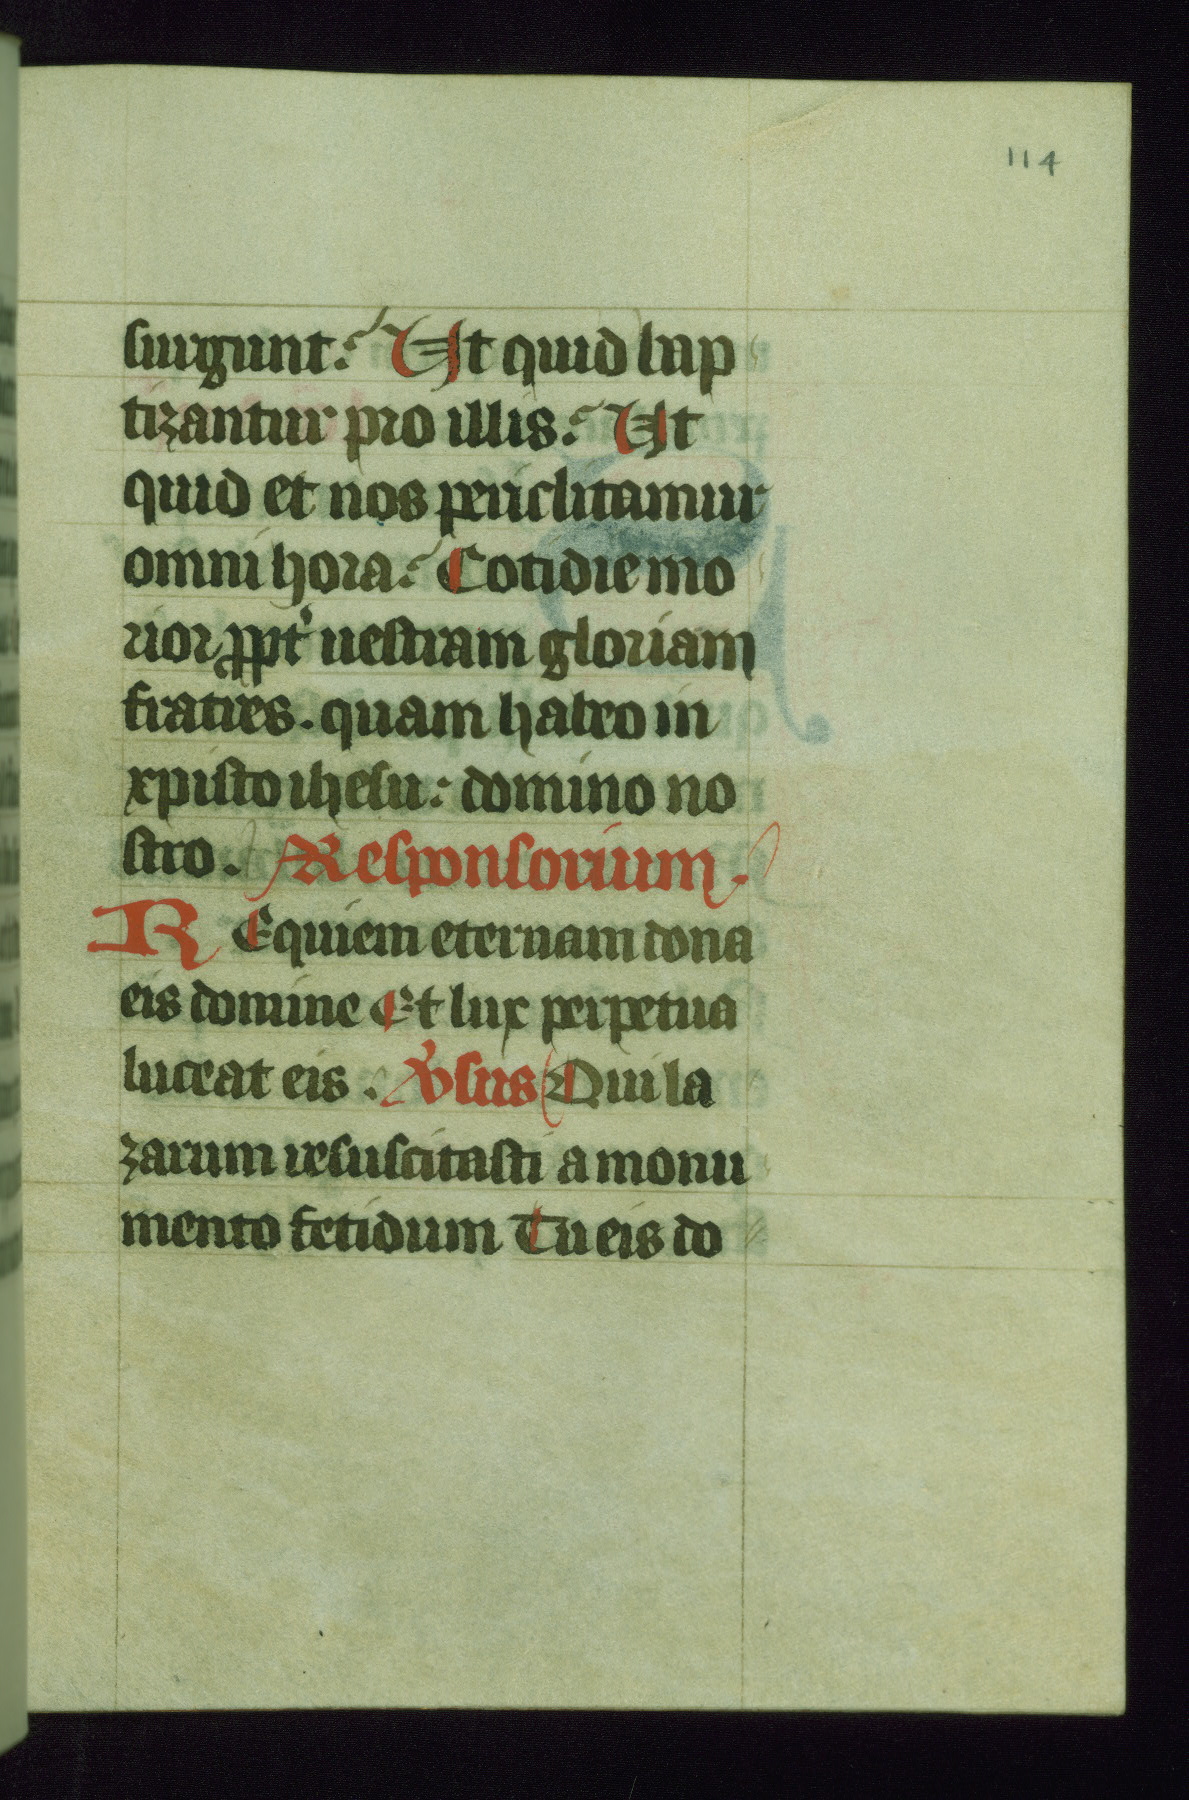 114
surgunt? Ut quid bap
tizantur pro illis? Ut
quid et nos periclitamur
omni hora? Cotidie mo
rior ppt' uestram gloriam
fratres. quam habeo in
xpisto ihesu: domino no
stro. Responsorium.
REquiem eternam dona
eis domine Et lux perpetua
luceat eis. v'sus Qui la
zarum resuscitasti a monu
mento fetidum Tu eis do